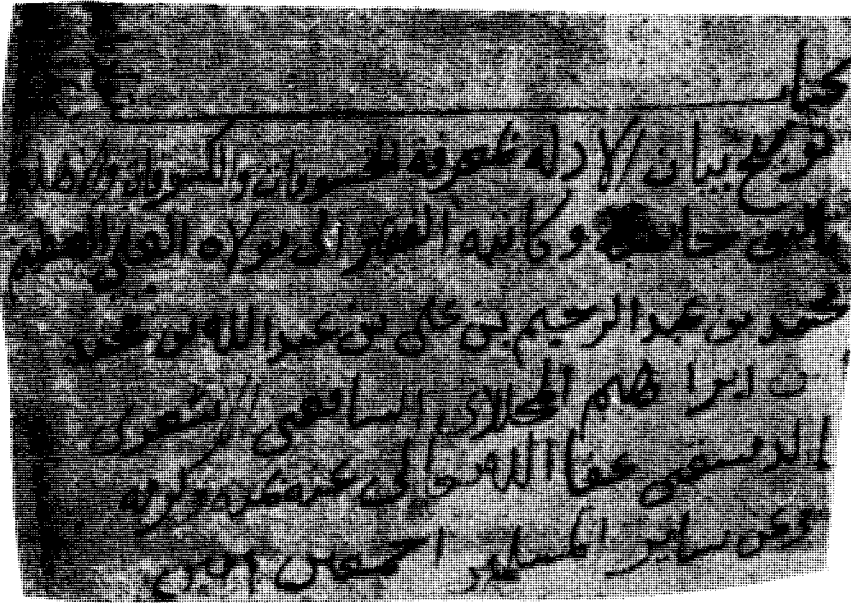 كتاب
توضيح بيان الادله لمعرفة الخسوفات والكسوفات والاهله
تاليف جامعه وكاتبه الفقير الى مولاه العلي العظيم
محمد بن عبد الرحيم بن علي بن عبد الله بن محمد
بن ابراهيم المحلاوي الشافعي الاشعري
الدمشقي عفا الله تعالى عنه بمنه وكرمه
وعن ساير المسلمين اجمعين امين